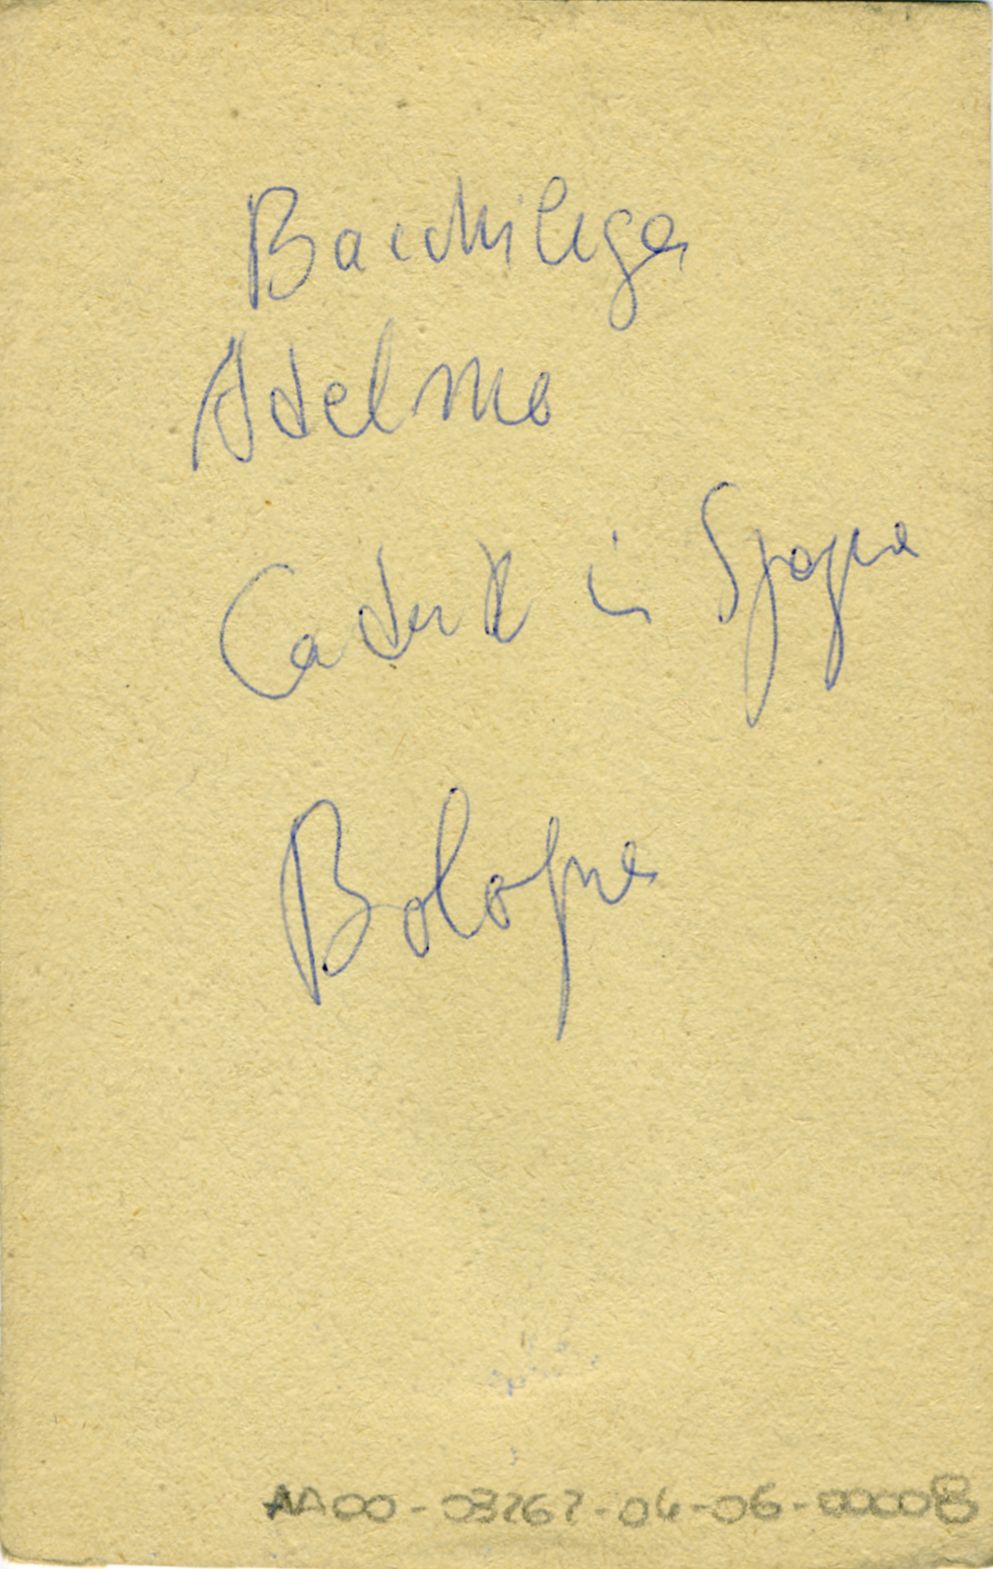 Bacchilega
Adelmo
Caduto in Spagna
Bologna
AA00-03267-04-06-00008